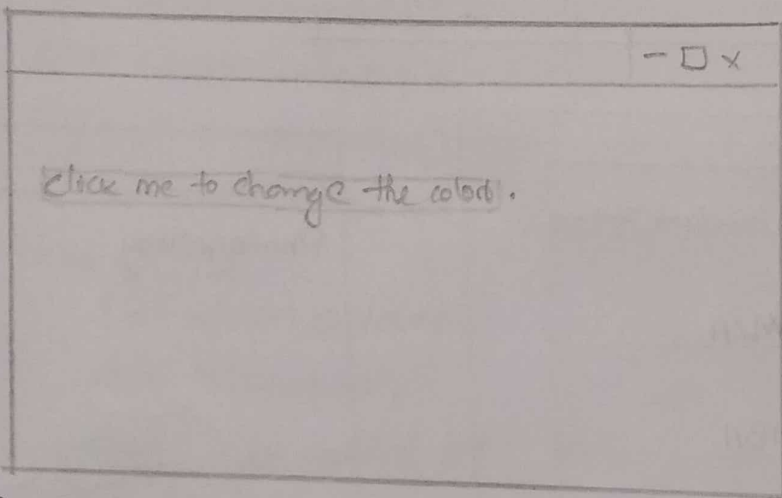 - □ ×
click me to change the color.